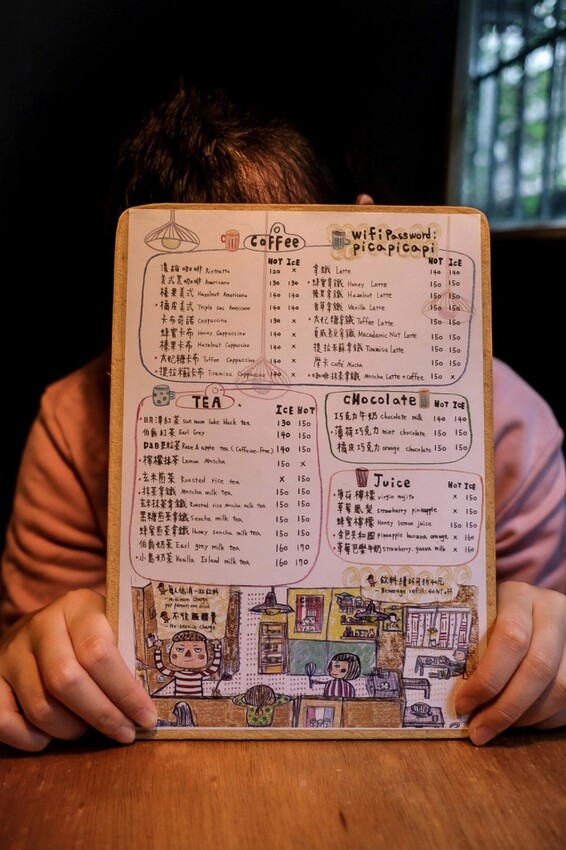 Coffee
wifi Password:
picapicapi
HOT ICE
濃縮咖啡 Ristretto 120 ×
美式黑咖啡 Americano 130 130
榛果美式 Hazelnut Americano 140 140
橘皮美式 Triple sec Americano 140 140
卡布奇諾 Cappuccino 130 ×
蜂蜜卡布 Honey Cappuccino 140 ×
榛果卡布 Hazelnut Cappuccino 140 ×
太妃糖卡布 Toffee Cappuccino 140 ×
提拉米蘇卡布 Tiramisu Cappuccino 140 ×
HOT ICE
拿鐵 Latte 140 140
蜂蜜拿鐵 Honey Latte 150 150
榛果拿鐵 Hazelnut Latte 150 150
香草拿鐵 Vanilla Latte 150 150
太妃糖拿鐵 Toffee Latte 150 150
夏威夷豆拿鐵 Macadamia Nut Latte 150 150
提拉米蘇拿鐵 Tiramisu Latte 150 150
摩卡 Café Mocha 150 150
咖啡抹茶拿鐵 Matcha Latte + coffee × 150
TEA
ICE HOT
日月潭紅茶 sun moon lake black tea 130 150
伯爵紅茶 Earl Grey 140 150
Rose & apple tea (Caffeine-free) 140 150
檸檬抹茶 Lemon Matcha 150 ×
玄米煎茶 Roasted rice tea × 150
抹茶拿鐵 Matcha milk tea 150 150
玄米抹茶拿鐵 Roasted rice matcha milk tea 150 150
黑糖煎茶拿鐵 Sencha milk tea 150 150
蜂蜜煎茶拿鐵 Honey sencha milk tea 150 150
伯爵奶茶 Earl grey milk tea 160 170
小島奶茶 Vanilla Island milk tea 160 170
CHocolate
HOT ICE
巧克力牛奶 chocolate milk 140 140
薄荷巧克力 mint chocolate 150 150
橘皮巧克力 orange chocolate 150 150
Juice
HOT ICE
薄荷檸檬 virgin mojito × 150
草莓鳳梨 strawberry pineapple × 150
蜂蜜檸檬 Honey lemon juice 150 150
金色共和國 pineapple banana orange × 160
草莓芭樂牛奶 strawberry, guava milk × 160
飲料續杯可折40元
- Beverage refills 40 NT off
每人低消一杯飲料
- Minimum charge
per person one drink
不收服務費
- No service charge